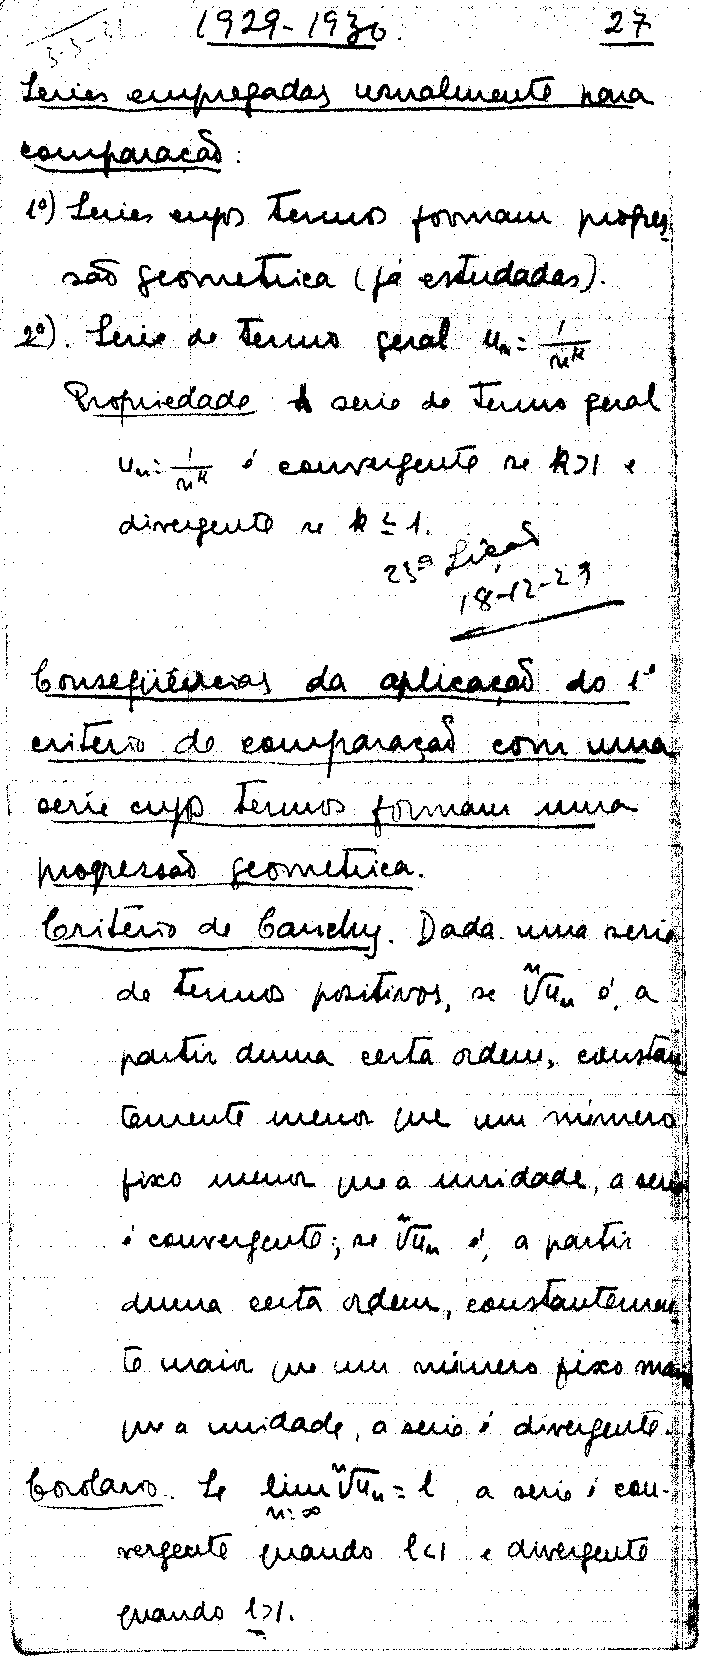 3-3-31 1929-1930. 27
Series empregadas usualmente para
comparação:
1º) Series cujos termos formam progres
são geometrica (já estudadas).
2º). Serie de termo geral uₙ = 1/nᵏ
Propriedade A serie de termo geral
uₙ = 1/nᵏ é convergente se k>1 e
divergente se k ≤ 1.
23ª Lição
18-12-29
Conseqüências da aplicação do 1º
critério de comparação com uma
serie cujos termos formam uma
progressão geometrica.
Critério de Cauchy. Dada uma serie
de termos positivos, se ⁿ√uₙ é, a
partir duma certa ordem, constan
temente menor que um número
fixo menor que a unidade, a serie
é convergente; se ⁿ√uₙ é, a partir
duma certa ordem, constantemen
te maior que um número fixo maior
que a unidade, a serie é divergente.
Corolario. Se lim ⁿ√uₙ = l, a serie é con-
n=∞
vergente quando l<1 e divergente
quando l>1.